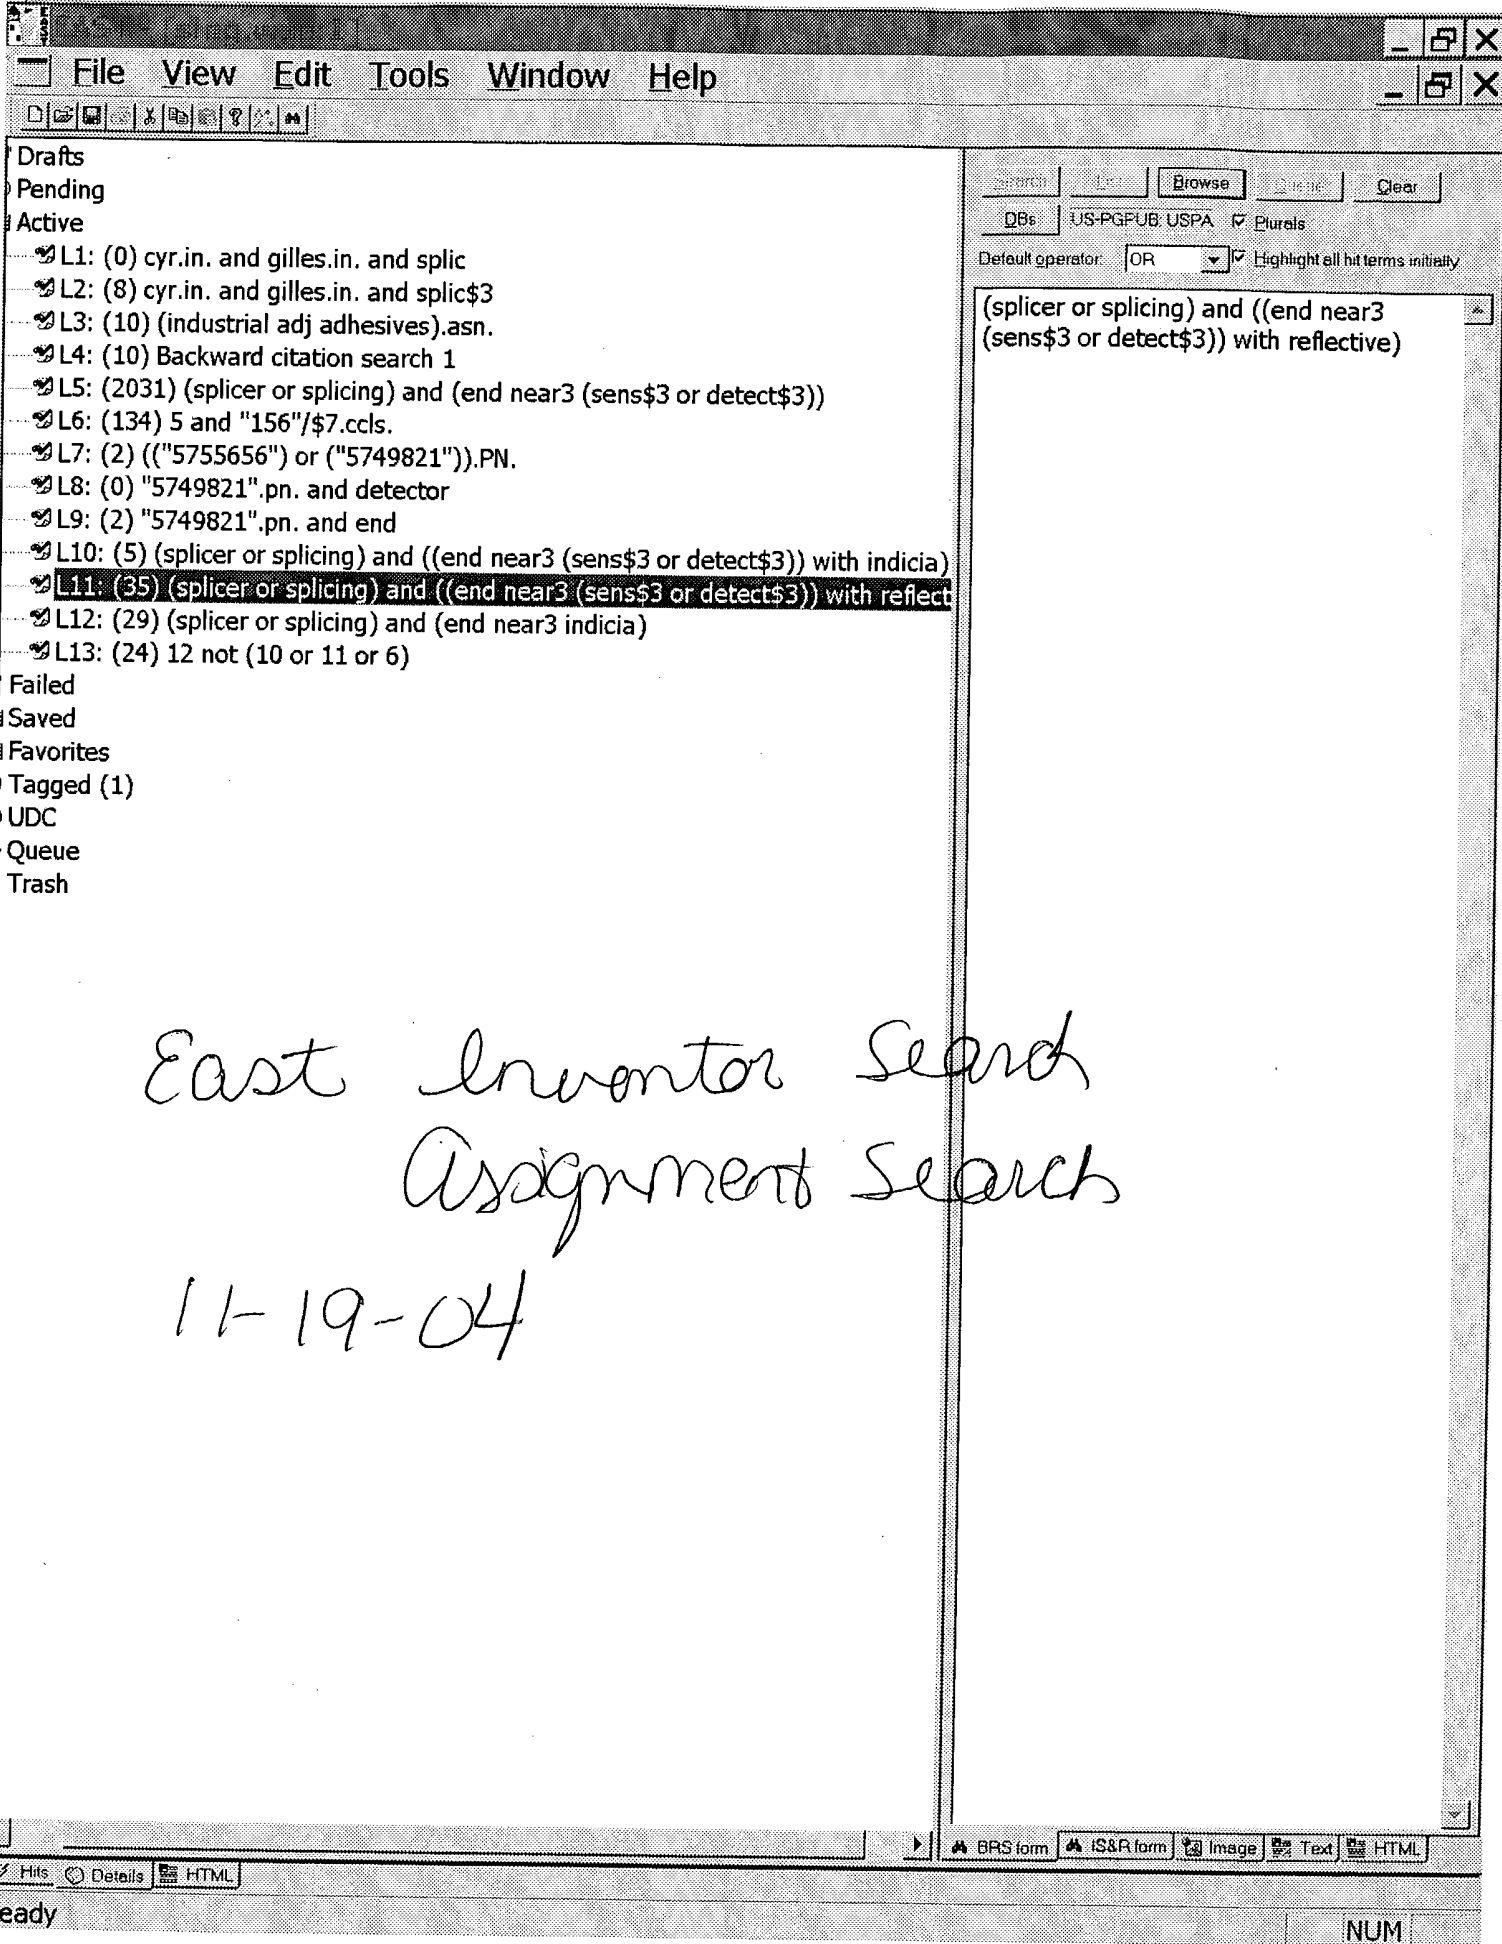 File View Edit Tools Window Help
Drafts
Pending
Active
L1: (0) cyr.in. and gilles.in. and splic
L2: (8) cyr.in. and gilles.in. and splic$3
L3: (10) (industrial adj adhesives).asn.
L4: (10) Backward citation search 1
L5: (2031) (splicer or splicing) and (end near3 (sens$3 or detect$3))
L6: (134) 5 and "156"/$7.ccls.
L7: (2) (("5755656") or ("5749821")).PN.
L8: (0) "5749821".pn. and detector
L9: (2) "5749821".pn. and end
L10: (5) (splicer or splicing) and ((end near3 (sens$3 or detect$3)) with indicia)
L11: (35) (splicer or splicing) and ((end near3 (sens$3 or detect$3)) with reflect
L12: (29) (splicer or splicing) and (end near3 indicia)
L13: (24) 12 not (10 or 11 or 6)
Failed
Saved
Favorites
Tagged (1)
UDC
Queue
Trash
Search List Browse Queue Clear
DBs US-PGPUB: USPA Plurals
Default operator: OR Highlight all hit terms initially
(splicer or splicing) and ((end near3
(sens$3 or detect$3)) with reflective)
East Inventor Search
Assignment Search
11-19-04
BRS form IS&R form Image Text HTML
Hits Details HTML
eady
NUM